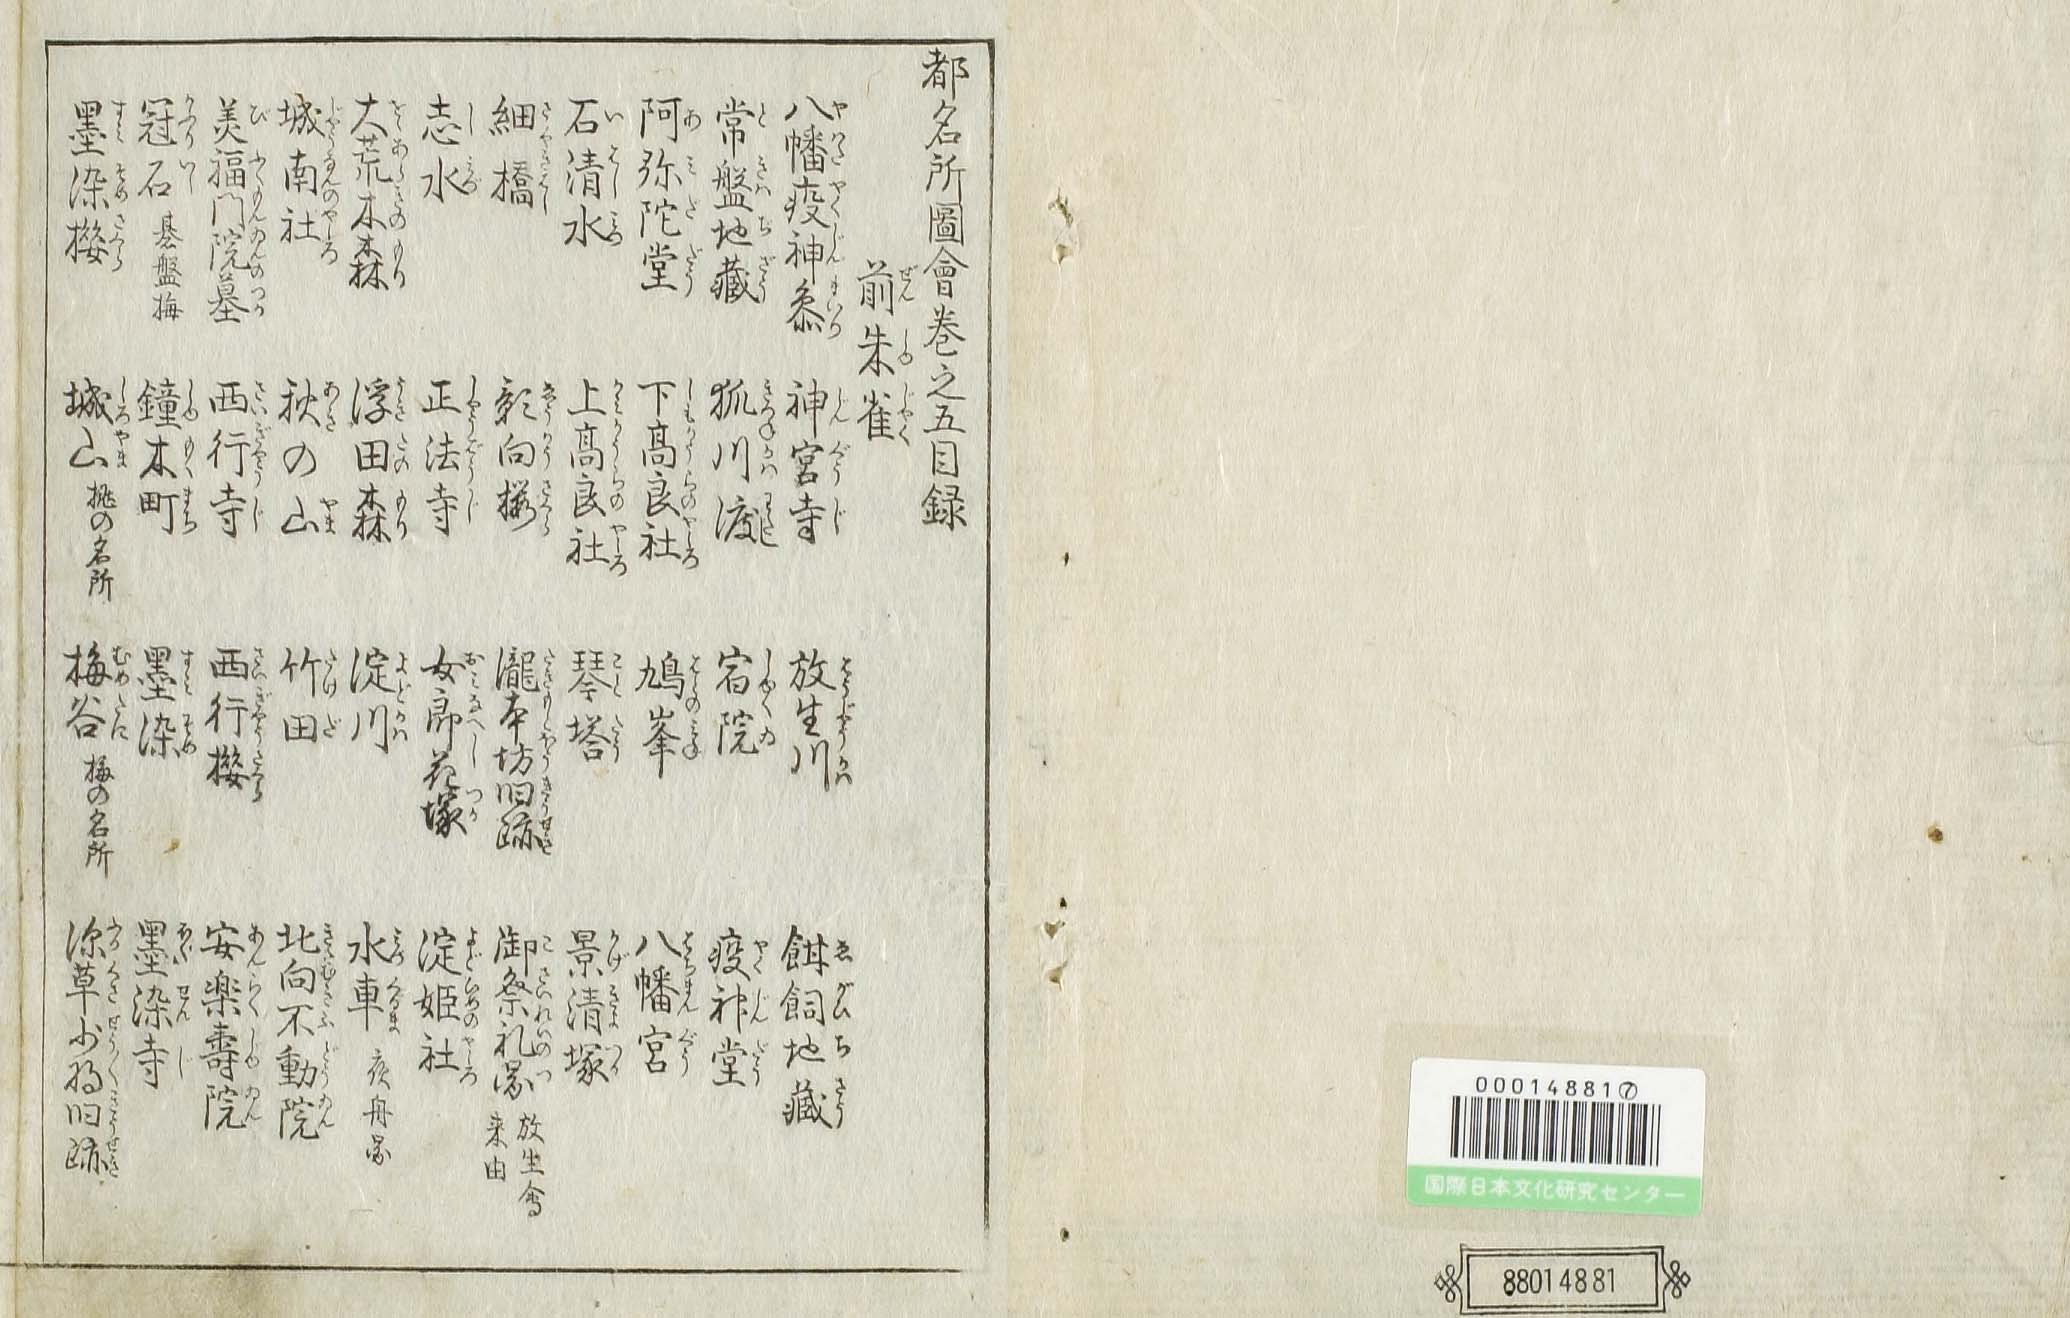 都名所圖會巻之五目録
前朱雀
八幡疫神參 神宮寺 放生川 餌飼地藏
常盤地藏 狐川渡 宿院 疫神堂
阿弥陀堂 下高良社 鳩峯 八幡宮
石清水 上高良社 琴塔 景清塚
細橋 影向桜 瀧本坊旧跡 御祭礼図 放生會来由
志水 正法寺 女郎花塚 淀姫社
大荒木森 浮田森 淀川 水車 夜舟図
城南社 秋の山 竹田 北向不動院
美福門院墓 西行寺 西行櫻 安楽壽院
冠石 碁盤梅 鐘木町 墨染 墨染寺
墨染櫻 城山 桃の名所 梅谷 梅の名所 深草少将旧跡
00014881⑦
国際日本文化研究センター
88014881